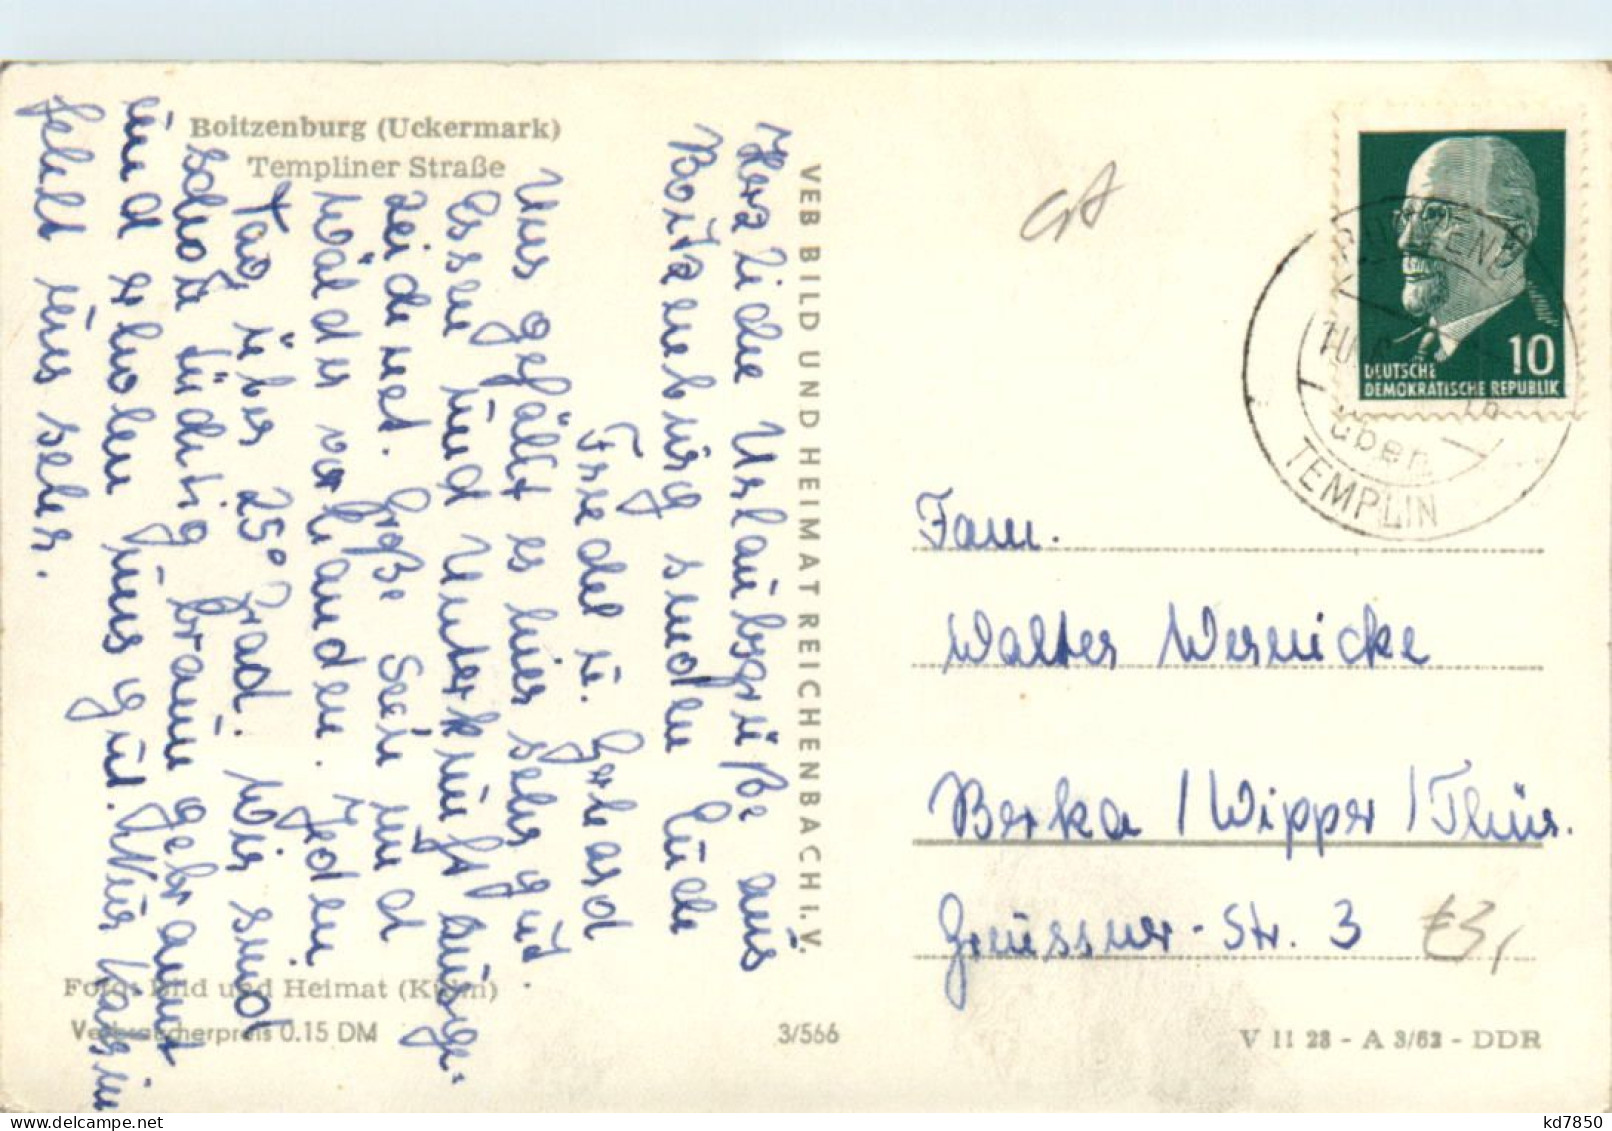 Boitzenburg (Uckermark)
Templiner Straße
Herzliche Urlaubsgrüße aus
Boitzenburg senden Euch
Friedel u. Gerhard
Uns gefällt es hier sehr gut.
Essen und Unterkunft ausge-
zeichnet. Große Seen und
Wälder vorhanden. Jeden
Tag über 25° Grad. Wir sind
schon tüchtig braun gebrannt
und erholen uns gut. Nur Karsin
fehlt uns sehr.
VEB BILD UND HEIMAT REICHENBACH I. V.
Foto: Bild und Heimat (Kühn)
Verbraucherpreis 0.15 DM
3/566
10
DEUTSCHE
DEMOKRATISCHE REPUBLIK
über
TEMPLIN
Fam.
Walter Wernicke
Berka / Wipper / Thür.
Greussner-Str. 3
€3,
V 11 28 - A 3/62 - DDR
kd7850